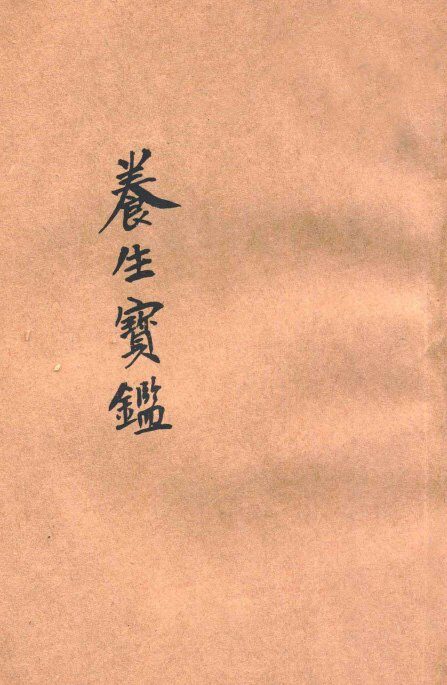 養生寶鑑